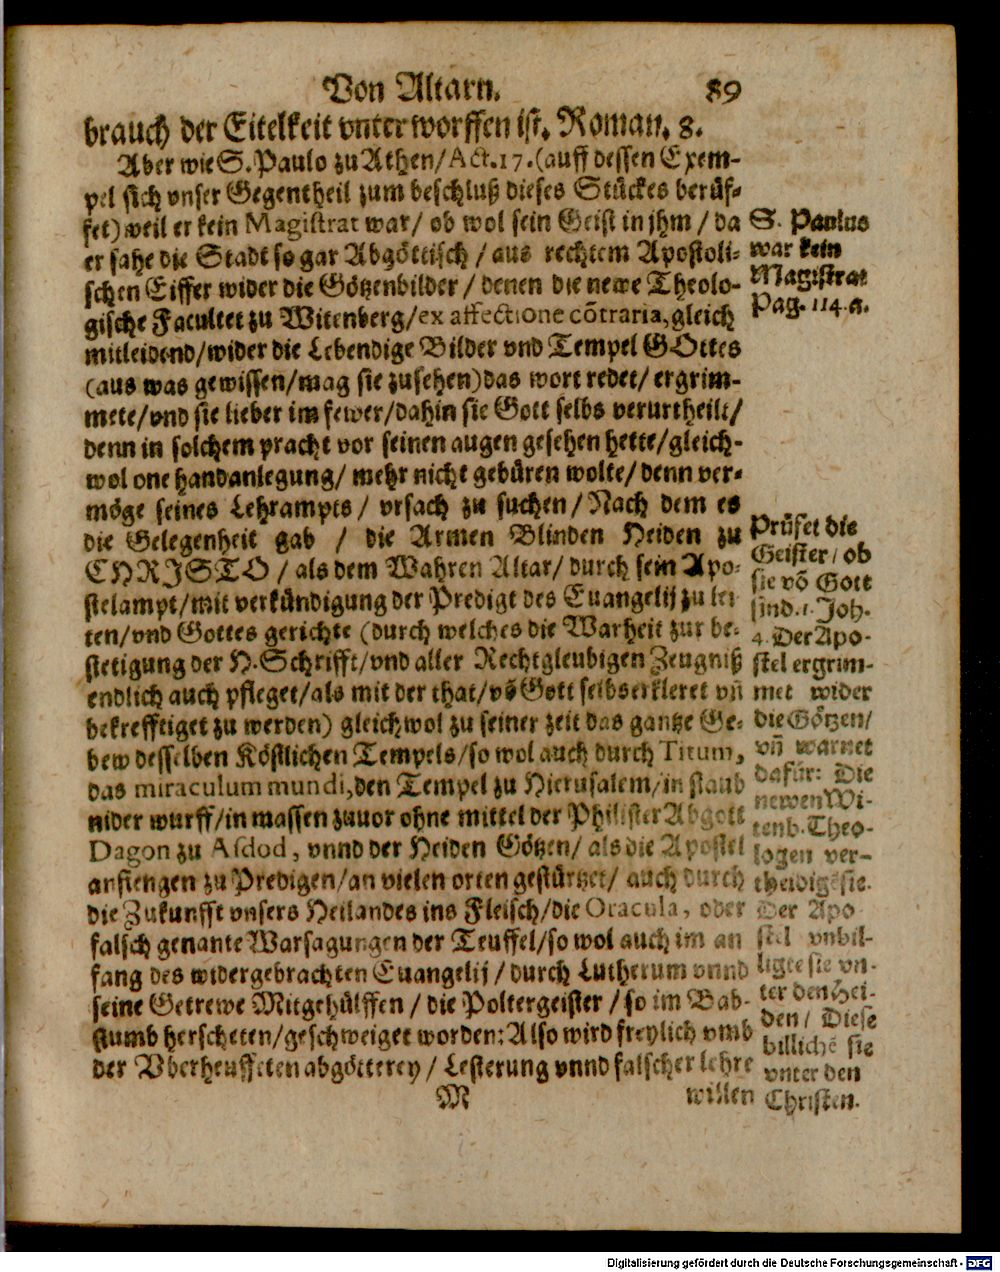 Von Altarn. 89
brauch der Eitelkeit vnterworffen ist. Roman. 8.
Aber wie S. Paulo zu Athen/Act.17.(auff dessen Exem-
pel sich vnser Gegentheil zum beschluß dieses Stückes berüf-
fet) weil er kein Magistrat war/ ob wol sein Geist in jhm / da
er sahe die Stadt so gar Abgöttisch / aus rechtem Apostoli-
schen Eiffer wider die Götzenbilder / denen die newe Theolo-
gische Facultet zu Witenberg/ex affectione cõtraria, gleich
mitleidend/wider die Lebendige Bilder vnd Tempel GOttes
(aus was gewissen/mag sie zusehen)das wort redet/ ergrim-
mete/vnd sie lieber im fewer/dahin sie Gott selbs verurtheilt/
denn in solchem pracht vor seinen augen gesehen hette/gleich-
wol one handanlegung/ mehr nicht gebüren wolte/ denn ver-
möge seines Lehrampts / vrsach zu suchen / Nach dem es
die Gelegenheit gab / die Armen Blinden Heiden zu
CHRISTO / als dem Wahren Altar/ durch sein Apo-
stelampt/mit verkündigung der Predigt des Euangelij zu lei
ten/vnd Gottes gerichte (durch welches die Warheit zur be-
stetigung der H. Schrifft/vnd aller Rechtgleubigen Zeugniß
endlich auch pfleget/als mit der that/võ Gott selbserkleret vñ
bekrefftiget zu werden) gleichwol zu seiner zeit das gantze Ge-
bew desselben Köstlichen Tempels/so wol auch durch Titum,
das miraculum mundi, den Tempel zu Hierusalem/in staub
nider wurff/in massen zuuor ohne mittel der Philister Abgott
Dagon zu Asdod, vnnd der Heiden Götzen/ als die Apostel
anfiengen zu Predigen/an vielen orten gestürtzet/ auch durch
die Zukunfft vnsers Heilandes ins Fleisch/die Oracula, oder
falsch genante Warsagungen der Teuffel/so wol auch im an
fang des widergebrachten Euangelij / durch Lutherum vnnd
seine Getrewe Mitgehülffen / die Poltergeister / so im Bab-
stumb herscheten/geschweiget worden: Also wird freylich vmb
der Vberheuffeten abgötterey / Lesterung vnnd falscher lehre
M willen
S. Paulus
war kein
Magistrat
Pag. 114. a.
Prüfet die
Geister / ob
sie võ Gott
sind. 1. Joh.
4. Der Apo-
stel ergrim-
met wider
die Götzen/
vñ warnet
dafür: Die
newen Wi-
tenb. Theo-
logen ver-
theidigẽ sie.
Der Apo
stel vnbil-
ligte sie vn-
ter den Hei-
den / Diese
billichẽ sie
vnter den
Christen.
Digitalisierung gefördert durch die Deutsche Forschungsgemeinschaft - DFG